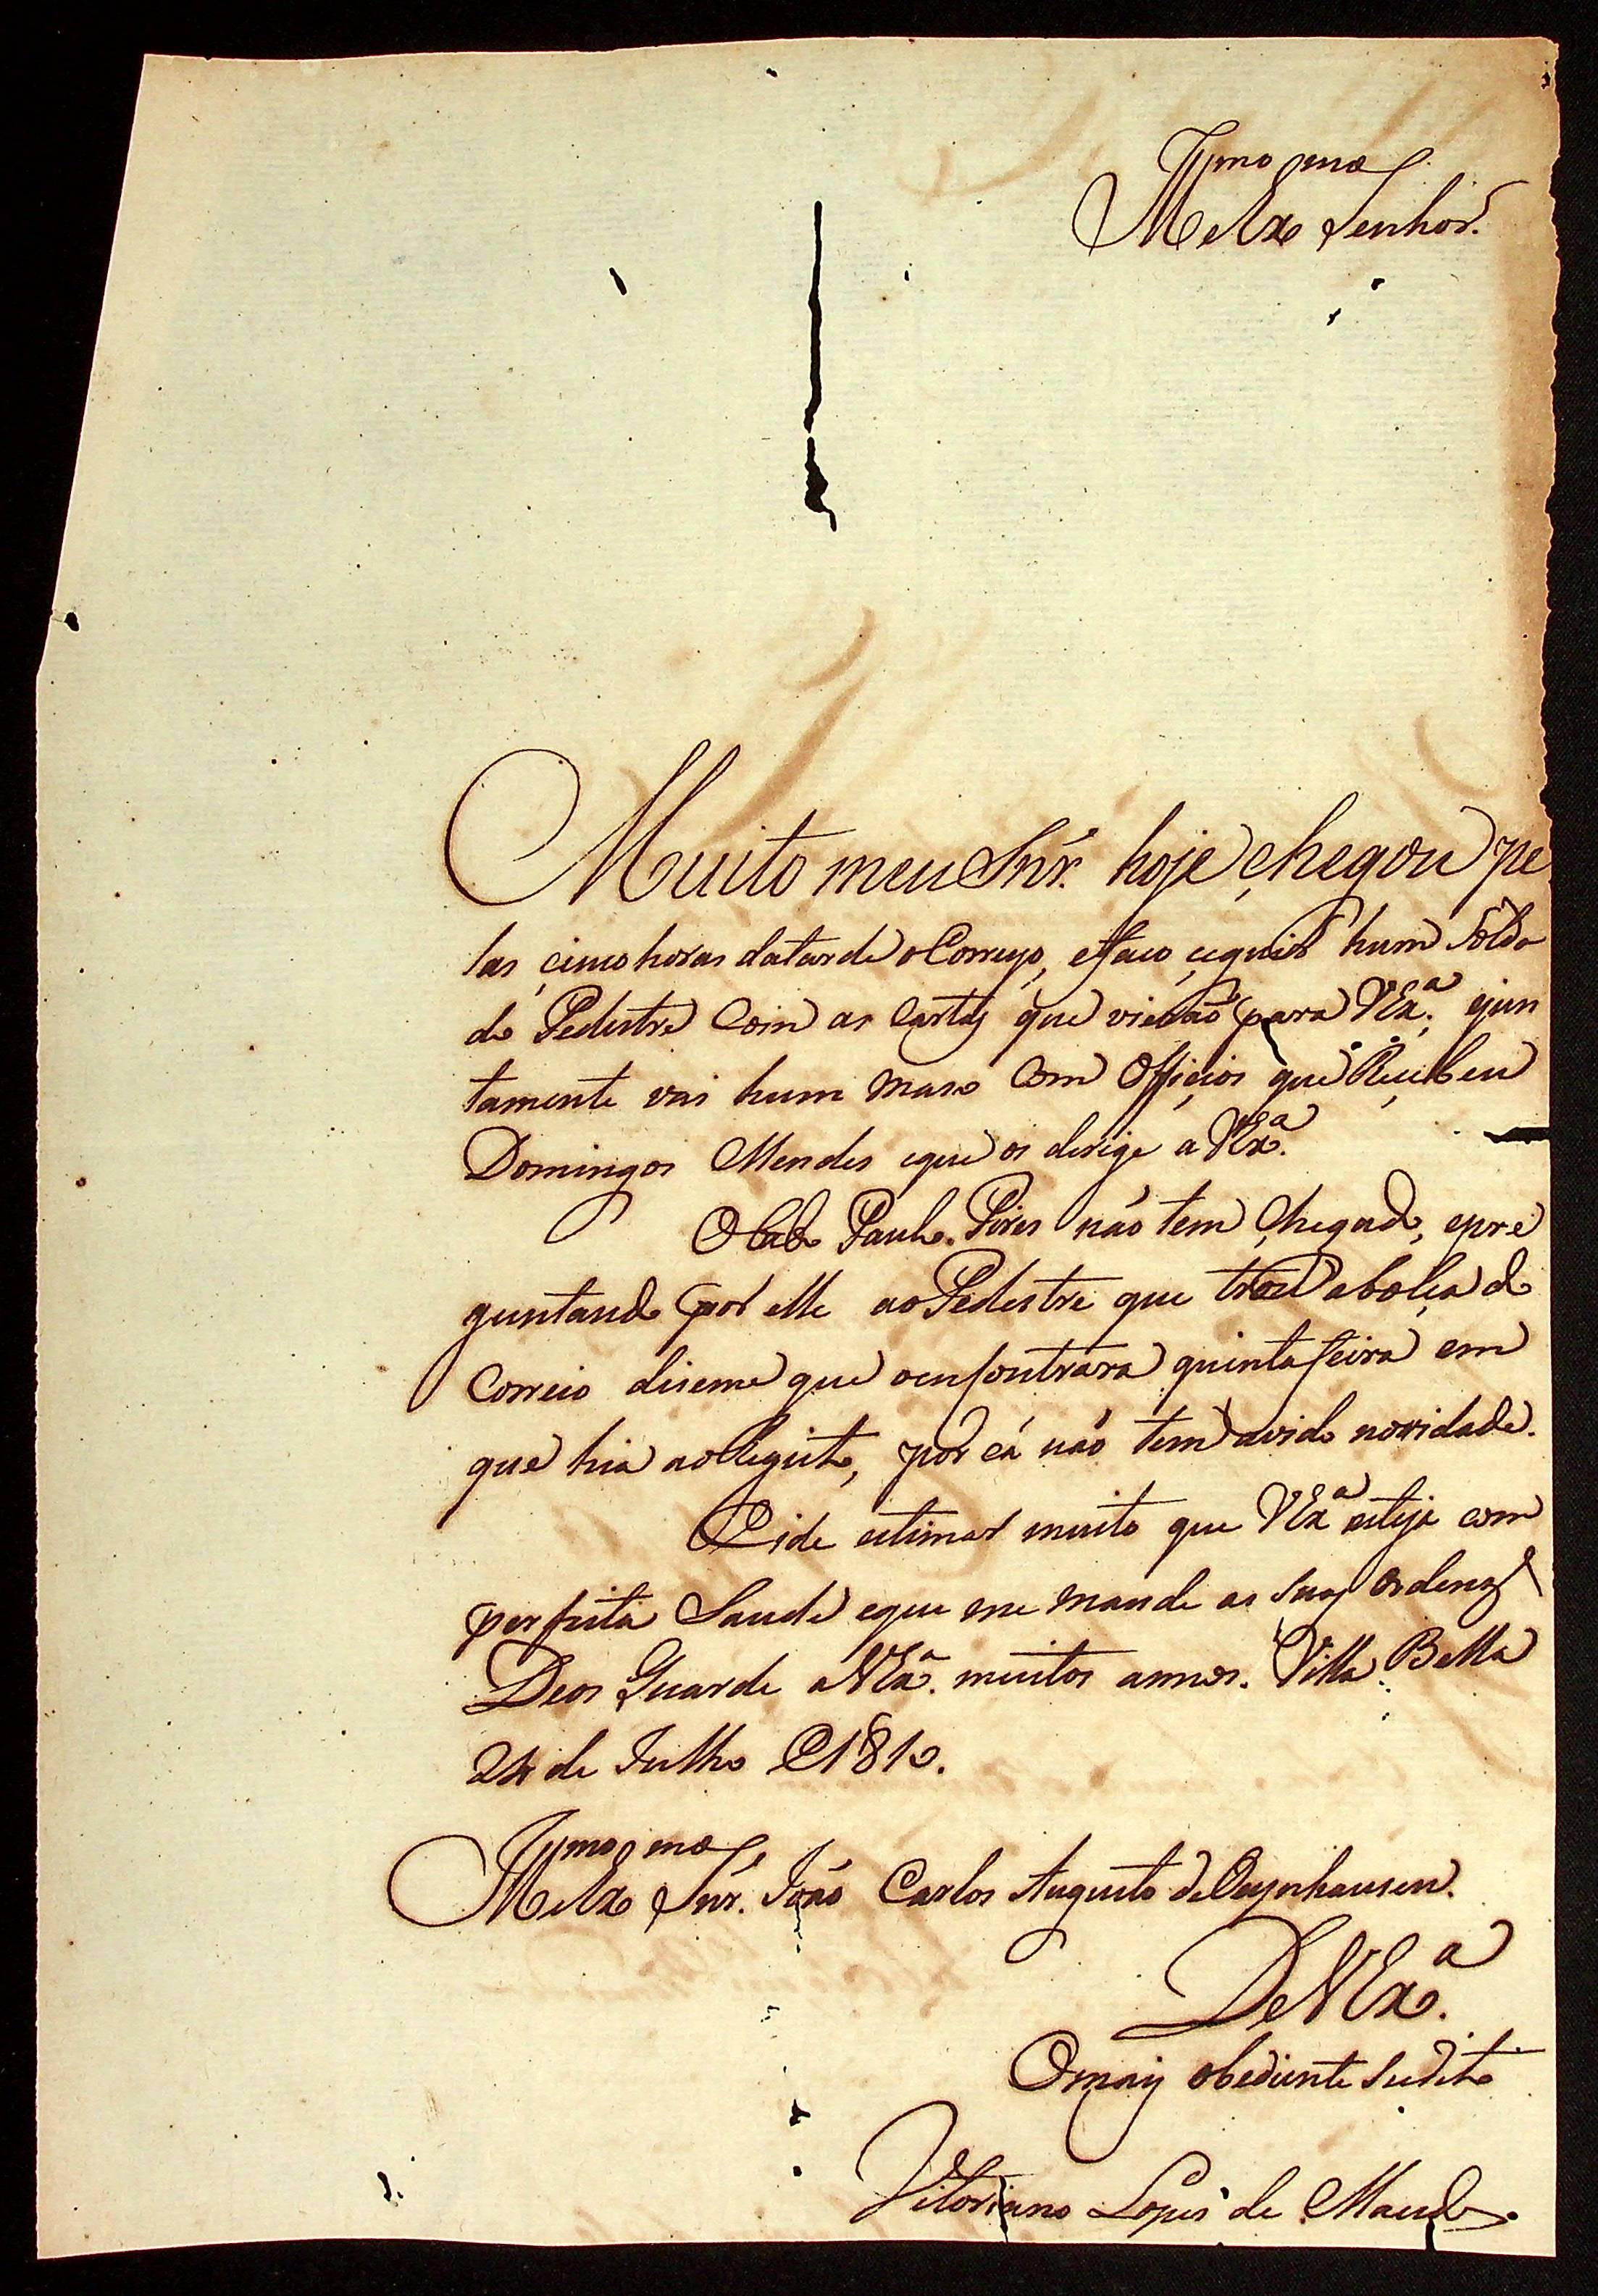 Illmo e Exmo Senhor.
Muito meu Snr. hoje chegou pe
las cinco horas datarde oCorreyo, efaço ceguir hum Solda
do Pedestre Com as Cartas que vierão para VExa. ejun
tamente vai hum maso Com Officios que Recebeu
Domingos Mendes eque os derige a VExa.
O Cabo Paulo Pires não tem chegado, epre
guntando por elle ao Pedestre que trou abolça do
Correio diseme que oencontrara quinta feira em
que hia aoRegisto, por cá não tem avido novidade.
Eide estimar muito que VExa esteja com
perfeita Saude eque me mande as Suas Ordens
Deos Guarde aVExa. muitos annos. Villa Bella
24 de Julho d1810.
Illmo e Exmo Snr. João Carlos Augusto deOeynhausen.
DeVExa.
Omais obediente Sudito
Vitoriano Lopes de Macedo.